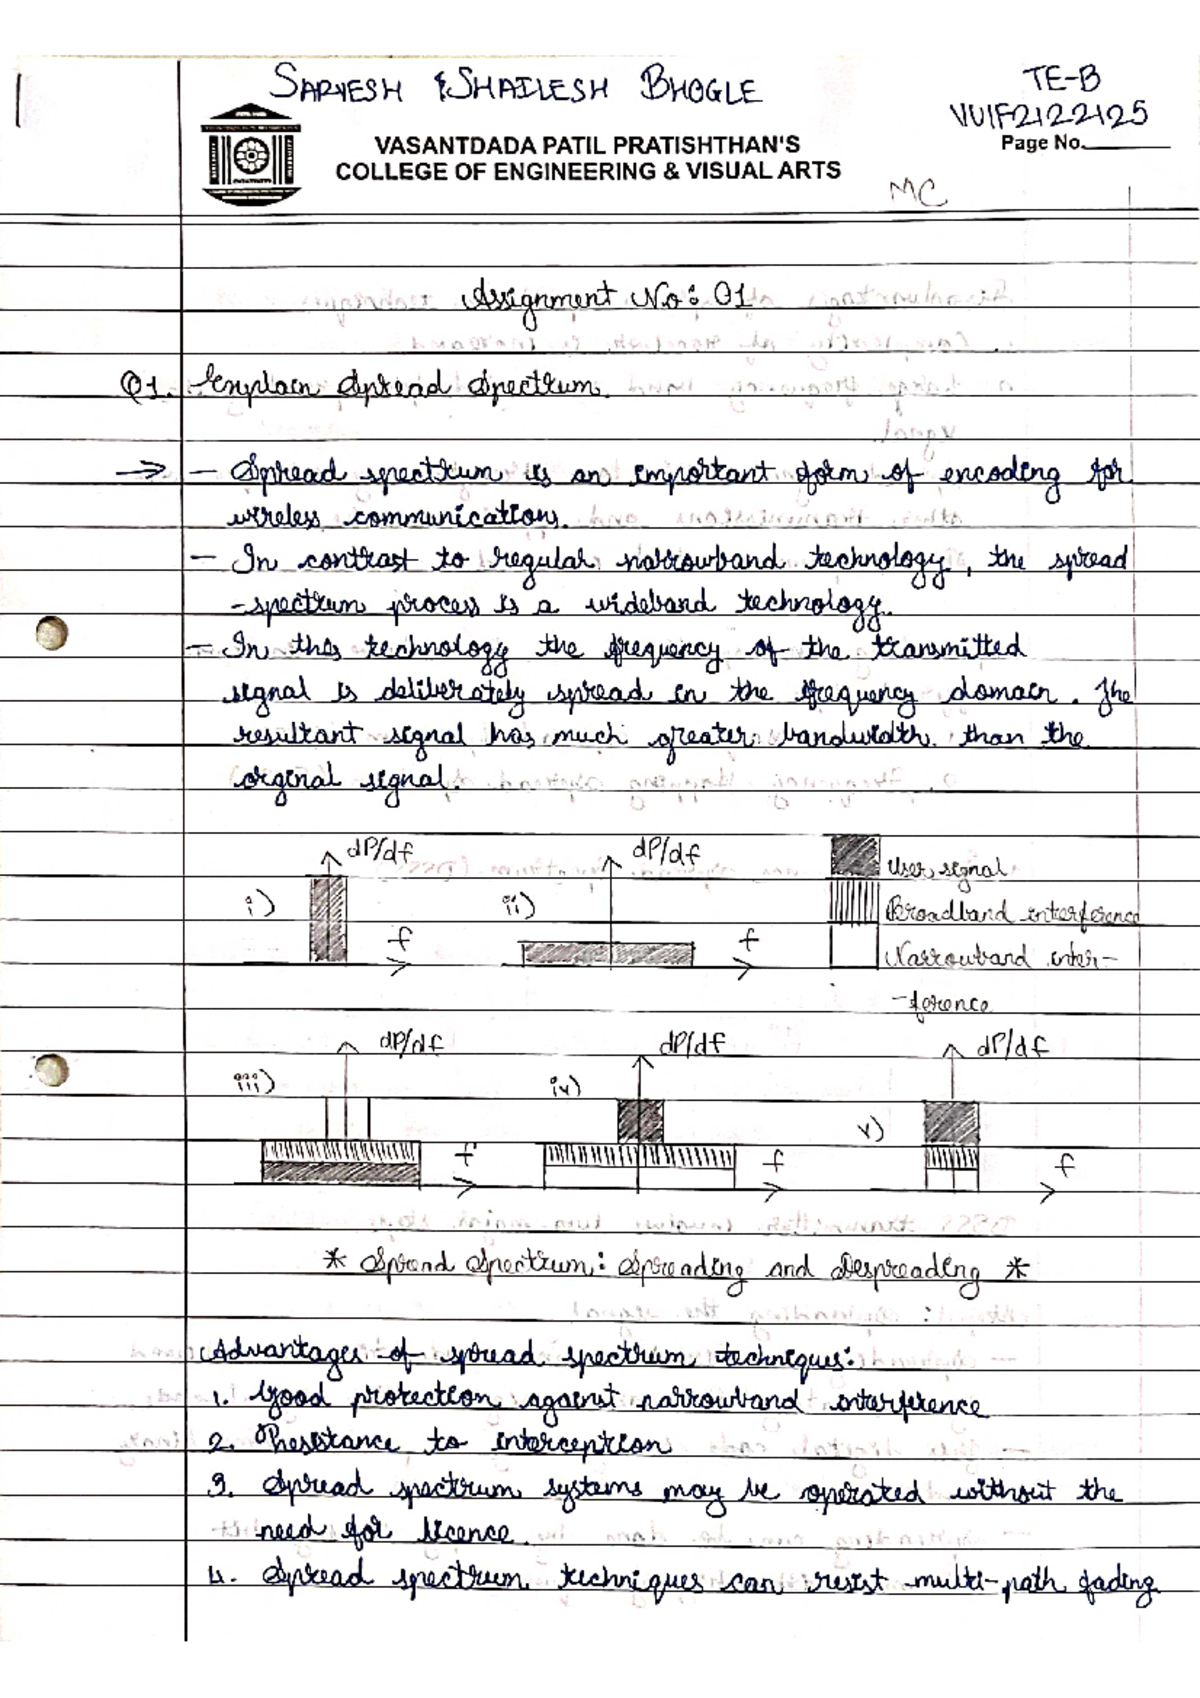 SARVESH SHAILESH BHOGLE
TE-B
VU1F2122125
VASANTDADA PATIL PRATISHTHAN'S
COLLEGE OF ENGINEERING & VISUAL ARTS
Page No.
MC
Assignment No: 01
Q1. Explain Spread Spectrum.
→ - Spread spectrum is an important form of encoding for
wireless communication.
- In contrast to regular narrowband technology, the spread
-spectrum process is a wideband technology.
- In this technology the frequency of the transmitted
signal is deliberately spread in the frequency domain. The
resultant signal has much greater bandwidth than the
orginal signal.
i) dP/df f
ii) dP/df f
User signal
Broadband interference
Narrowband inter-
-ference
iii) dP/df f
iv) dP/df f
v) dP/df f
* Spread Spectrum: Spreading and Despreading *
Advantages of spread spectrum techniques:
1. Good protection against narrowband interference
2. Resistance to interception
3. Spread spectrum systems may be operated without the
need for licence.
4. Spread spectrum techniques can resist multi-path fading